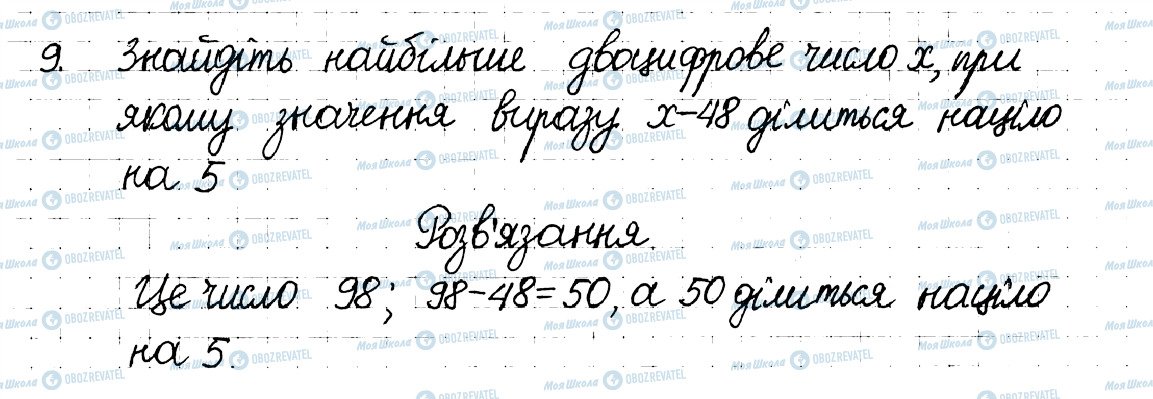 9. Знайдіть найбільше двоцифрове число x, при
якому значення виразу x-48 ділиться націло
на 5
Розв'язання.
Це число 98; 98-48=50, а 50 ділиться націло
на 5.